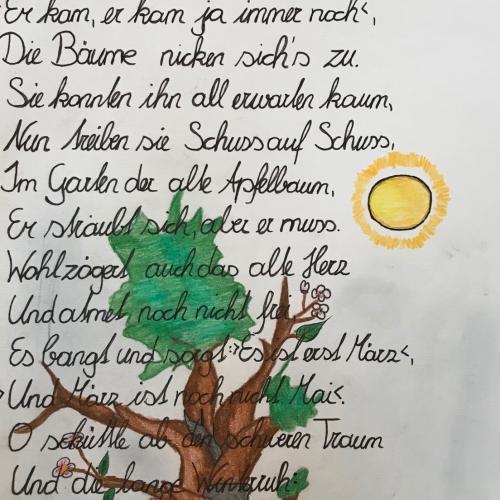 Er kam, er kam ja immer noch‹,
Die Bäume nicken sich's zu.
Sie konnten ihn all erwarten kaum,
Nun treiben sie Schuss auf Schuss,
Im Garten der alte Apfelbaum,
Er sträubt sich, aber er muss.
Wohl zögert auch das alte Herz
Und atmet noch nicht frei,
Es bangt und sorgt: ›Es ist erst März‹,
Und März ist noch nicht Mai‹.
O schüttle ab den schweren Traum
Und die lange Winterruh: